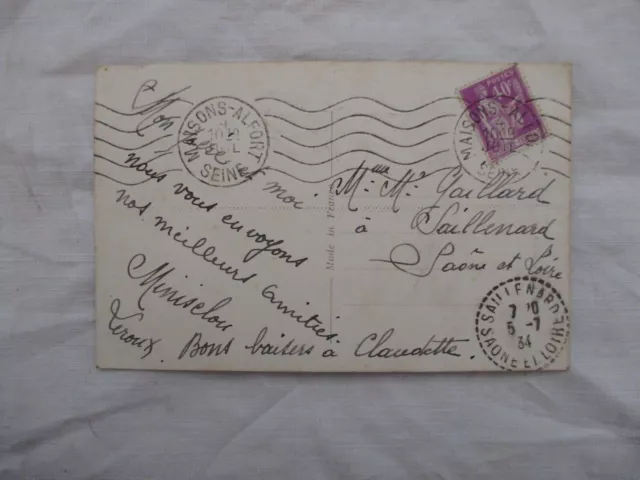 MAISONS-ALFORT
SEINE
POSTES
40c
MAISONS-A
Mon
et moi
nous vous envoyons
nos meilleurs amitiés
Leroux.
Bons baisers à Claudette.
Made in France
Mme Gaillard
à Saillenard
Saône et Loire
SAILLENARD
7 20
5 -7
34
SAONE ET LOIRE